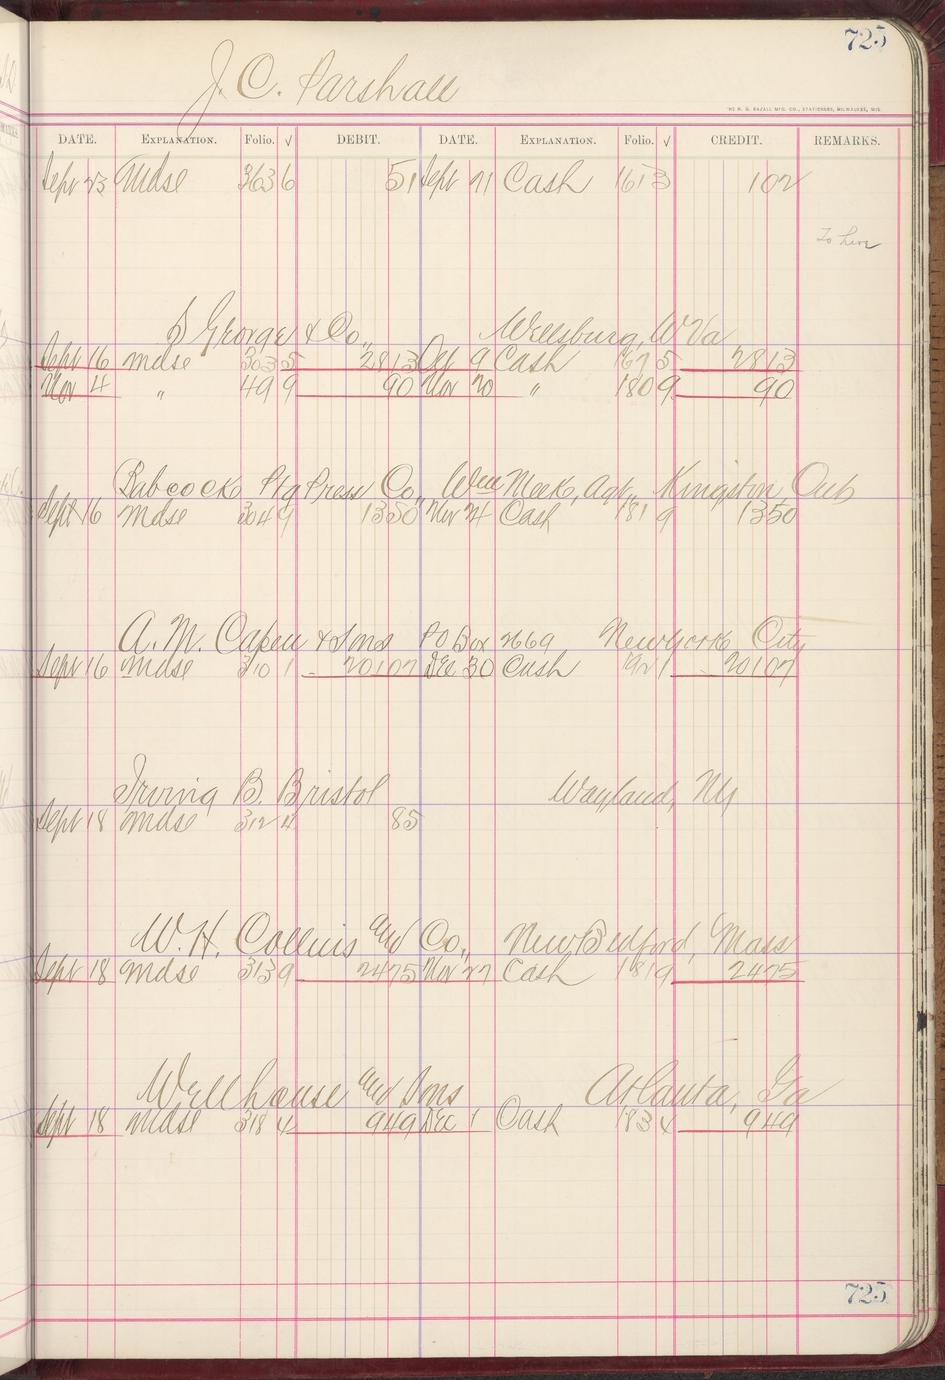 725
J. C. Parshall
THE H. G. RAZALL MFG. CO., STATIONERS, MILWAUKEE, WIS.
DATE. EXPLANATION. Folio. √ DEBIT. DATE. EXPLANATION. Folio. √ CREDIT. REMARKS.
Sept 23 Mdse 363 6 51 Sept 21 Cash 161 3 102
To
S George & Co., Wellsburg, W Va
Sept 16 mdse 303 5 2813 Oct 9 Cash 167 5 2813
Nov 4 " 49 9 90 Nov 20 " 180 9 90
Babcock Ptg Press Co., Wm Meek, Agt., Kingston, Ont
Sept 16 mdse 304 9 1350 Nov 24 Cash 181 9 1350
A. M. Capen & Sons PO Box 2669 New York City
Sept 16 mdse 310 1 20107 Dec 30 Cash 192 1 20107
Irving B. Bristol Wayland, NY
Sept 18 mdse 312 4 85
W. H. Collins and Co., New Bedford, Mass
Sept 18 mdse 313 9 2475 Nov 27 Cash 181 9 2475
Wellhouse and Sons Atlanta, Ga
Sept 18 mdse 318 4 949 Dec 1 Cash 183 4 949
725